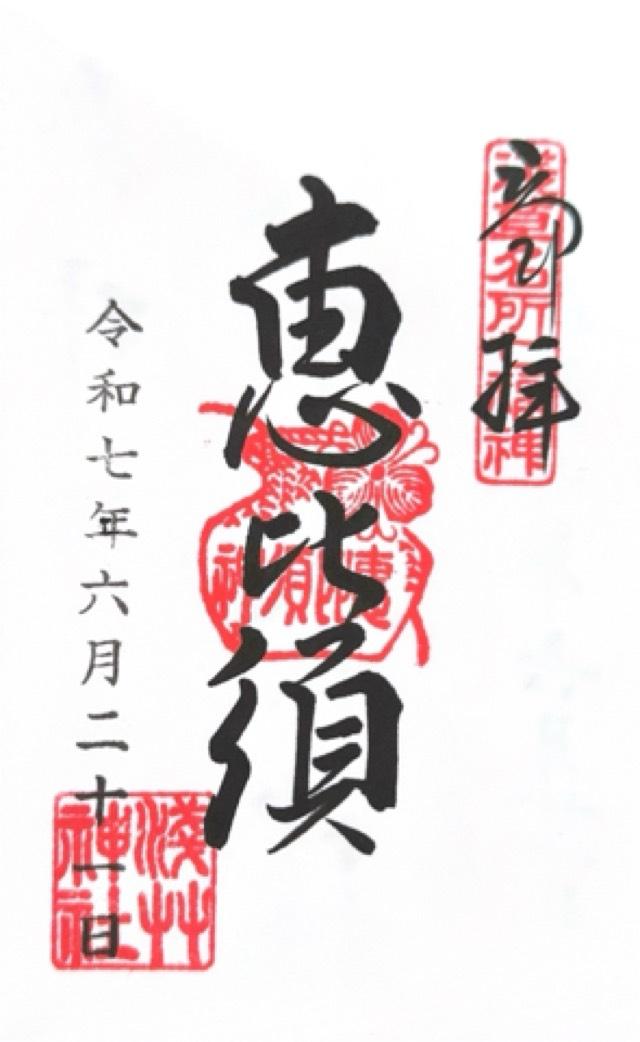 奉拝
浅草名所七福神
恵比須
恵比須神
令和七年六月二十一日
浅草
神社